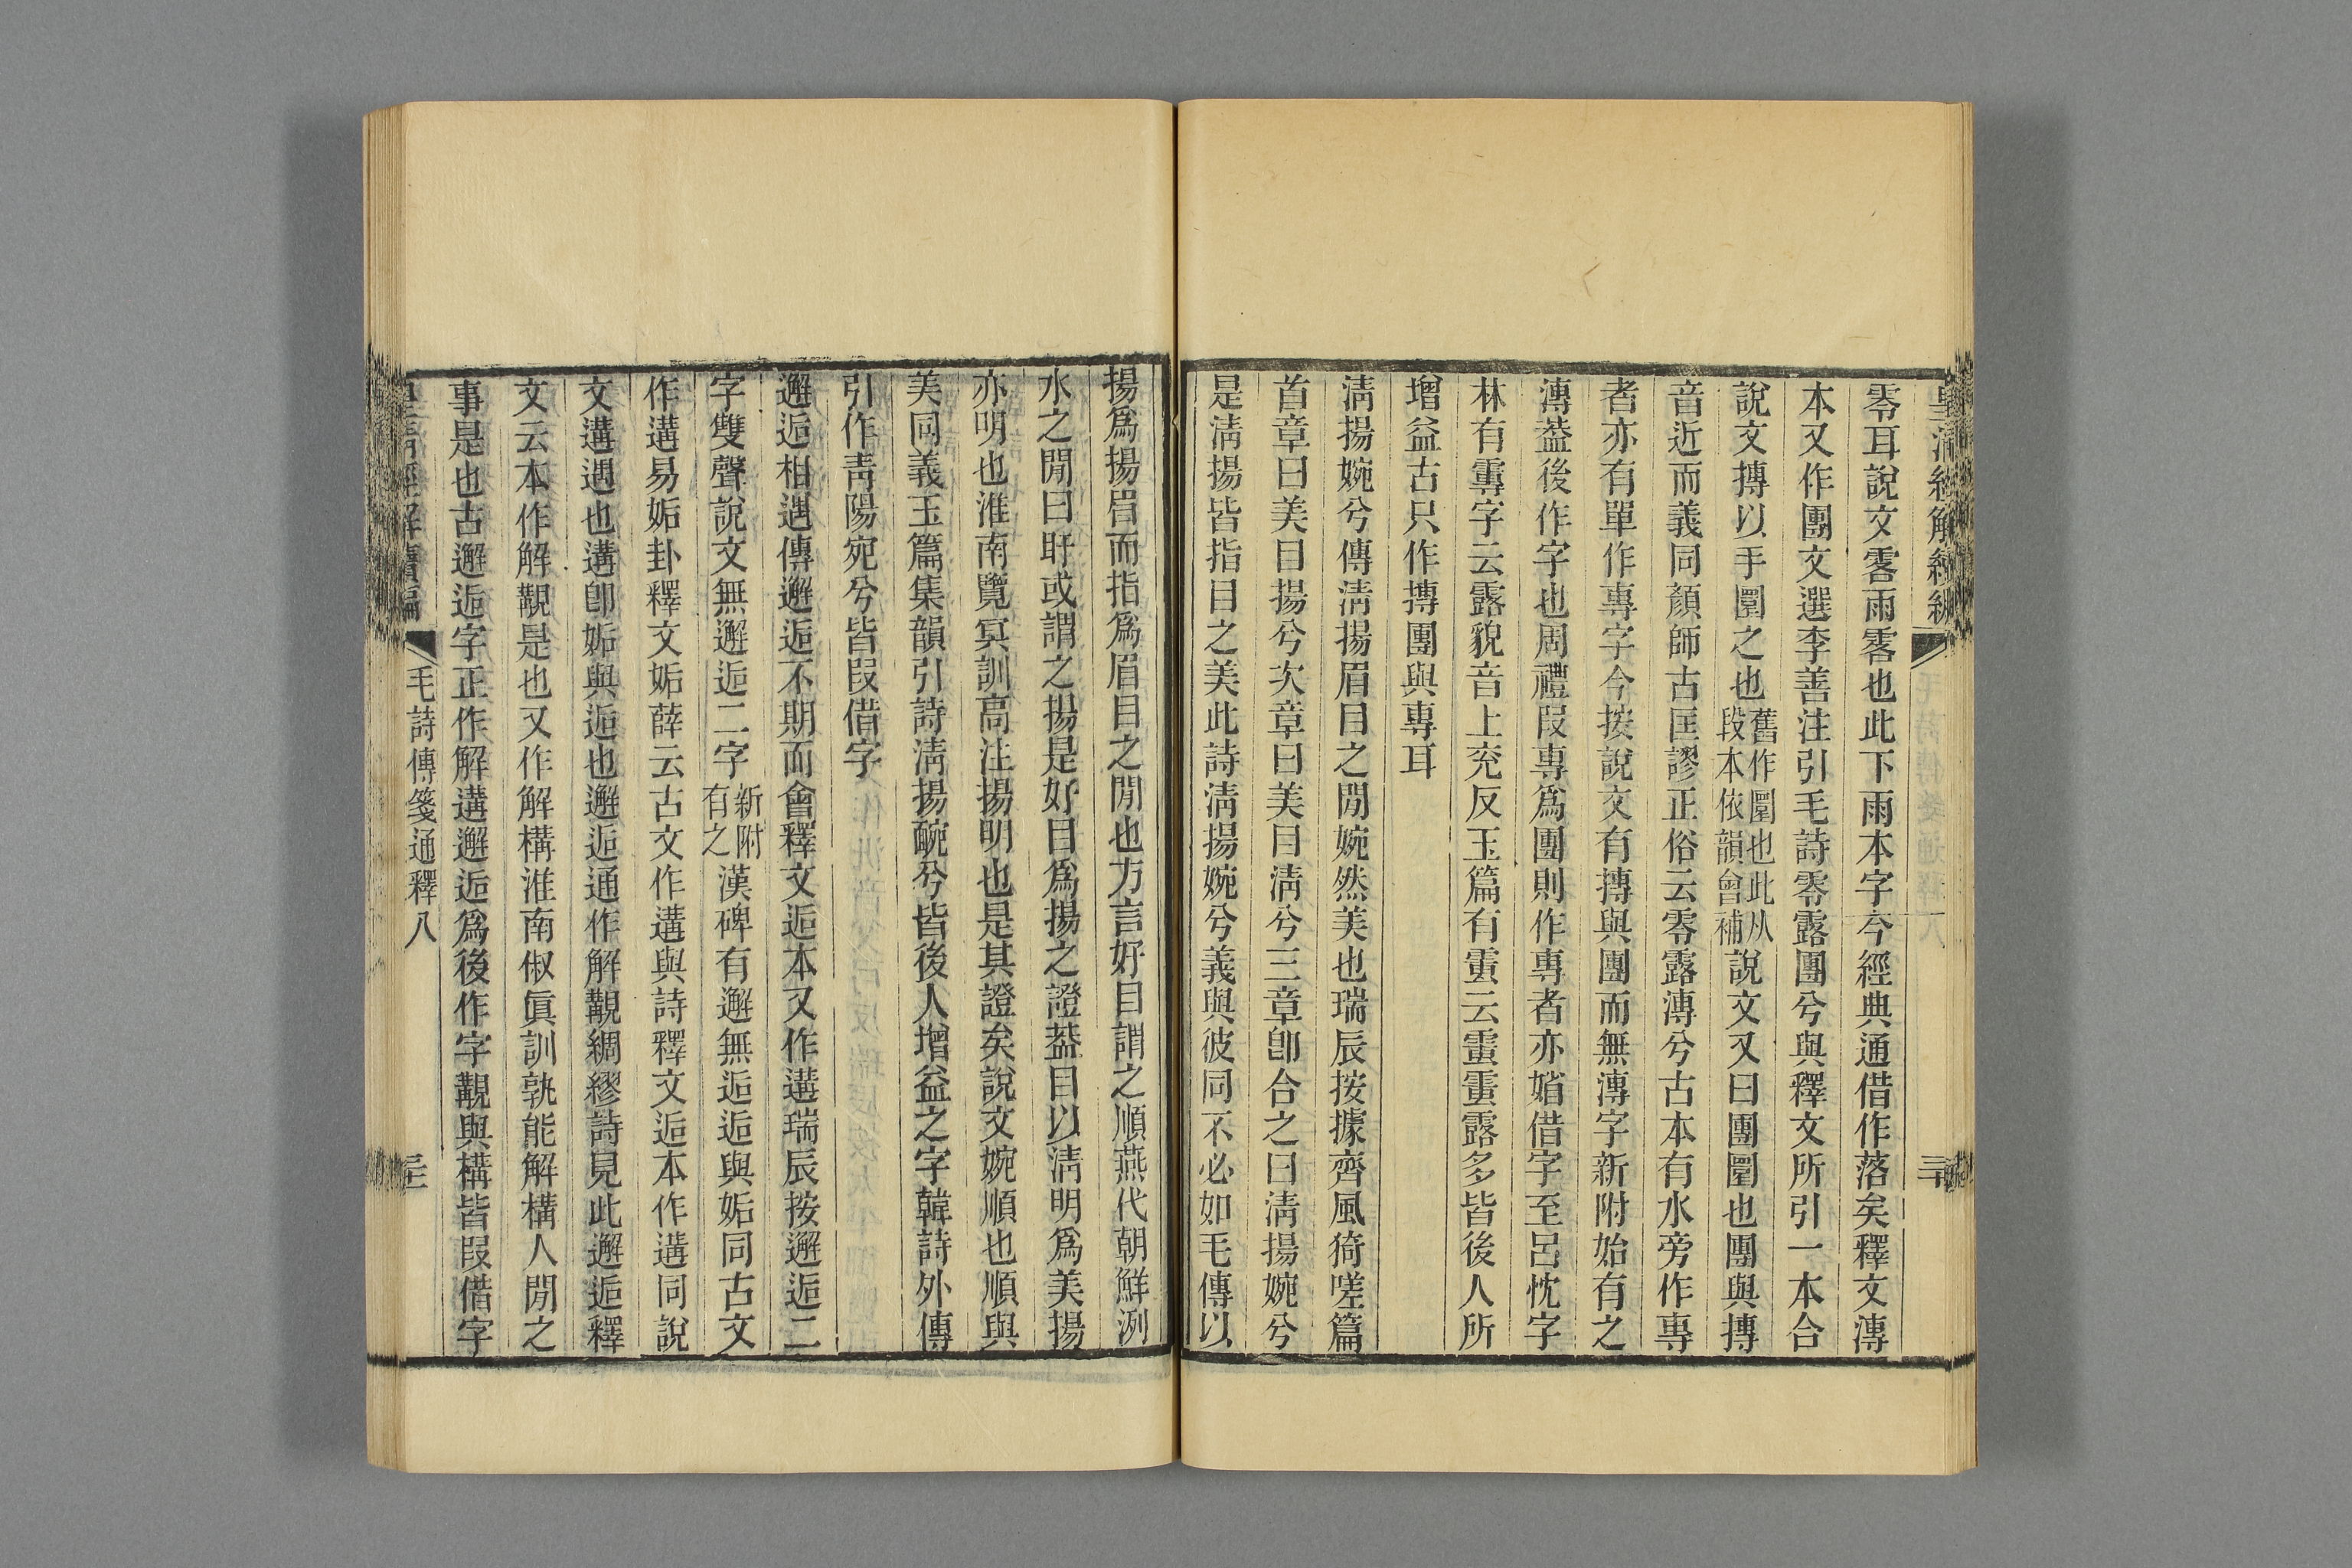 零耳說文零雨零也此下雨本字今經典通借作落矣釋文漙
本又作團文選李善注引毛詩零露團兮與釋文所引一本合
說文摶以手圜之也舊作圜也此从段本依韻會補說文又曰團圜也團與摶
音近而義同顏師古匡謬正俗云零露漙兮古本有水旁作專
者亦有單作專字今按說文有摶與團而無漙字新附始有之
漙葢後作字也周禮叚專爲團則作專者亦媘借字至呂忱字
林有䨷字云露貌音上兖反玉篇有䨴云䨴䨴露多皆後人所
增益古只作摶團與專耳
淸揚婉兮傳淸揚眉目之閒婉然美也瑞辰按據齊風猗嗟篇
首章曰美目揚兮次章曰美目淸兮三章卽合之曰淸揚婉兮
是淸揚皆指目之美此詩淸揚婉兮義與彼同不必如毛傳以
揚爲揚眉而指爲眉目之閒也方言好目謂之順燕代朝鮮洌
水之閒曰盱或謂之揚是好目爲揚之證葢目以淸明爲美揚
亦明也淮南覽冥訓高注揚明也是其證矣說文婉順也順與
美同義玉篇集韻引詩淸揚䩊兮皆後人增益之字韓詩外傳
引作靑陽宛兮皆叚借字
邂逅相遇傳邂逅不期而會釋文逅本又作遘瑞辰按邂逅二
字雙聲說文無邂逅二字新附有之漢碑有邂無逅逅與姤同古文
作遘易姤卦釋文姤薛云古文作遘與詩釋文逅本作遘同說
文遘遇也遘卽姤與逅也邂逅通作解覯綢繆詩見此邂逅釋
文云本作解覯是也又作解構淮南俶眞訓孰能解構人閒之
事是也古邂逅字正作解遘邂逅爲後作字覯與構皆叚借字
毛詩傳箋通釋八